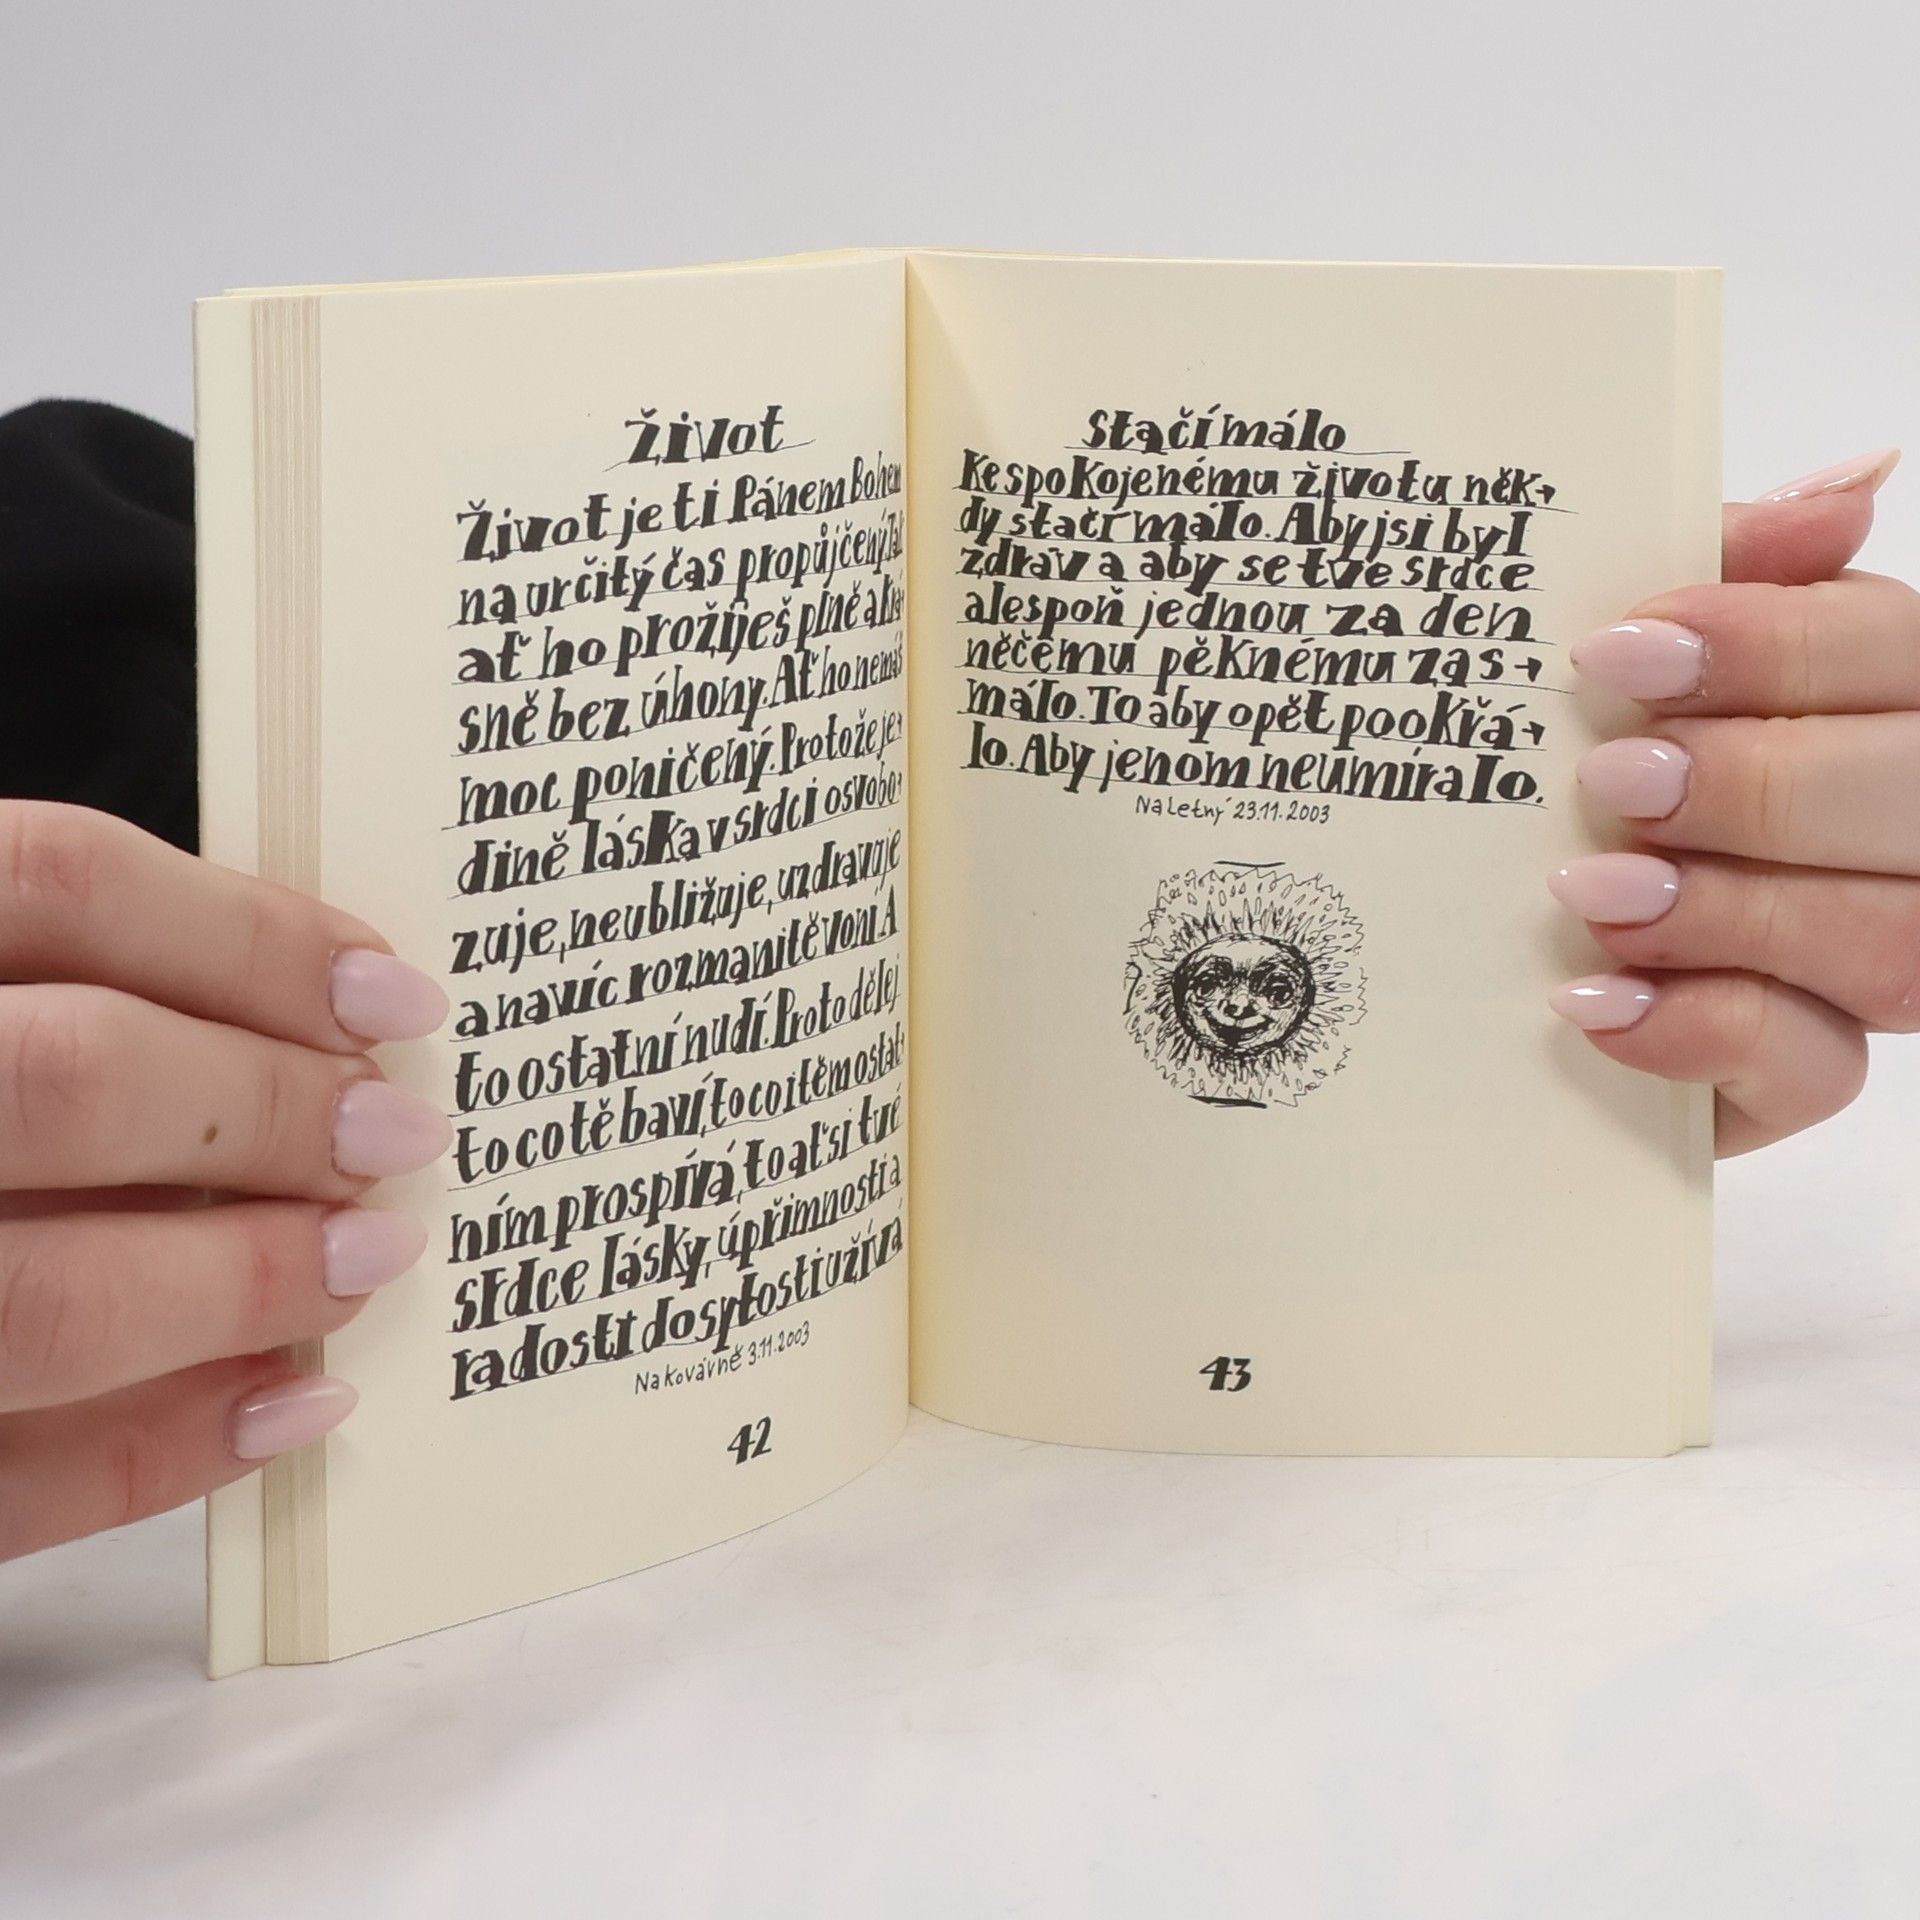 Život
Život je ti Pánem Bohem
na určitý čas propůjčený. Tak
ať ho prožiješ plně a krá→
sně bez úhony. Ať ho nemáš
moc poničený. Protože je→
dině láska v srdci osvobo→
zuje, neubližuje, uzdravuje
a navíc rozmanitě voní. A
to ostatní nudí. Proto dělej
to co tě baví, to co i těm ostat→
ním prospívá, to ať si tvé
srdce lásky, úpřimnosti a
radosti do sytosti užívá
Na kovárně 3.11.2003
42
Stačí málo
Ke spokojenému životu něk→
dy stačí málo. Aby jsi byl
zdráv a aby se tvé srdce
alespoň jednou za den
něčemu pěknému zas→
málo. To aby opět pookřá→
lo. Aby jenom neumíralo.
Na Letný 23.11.2003
43